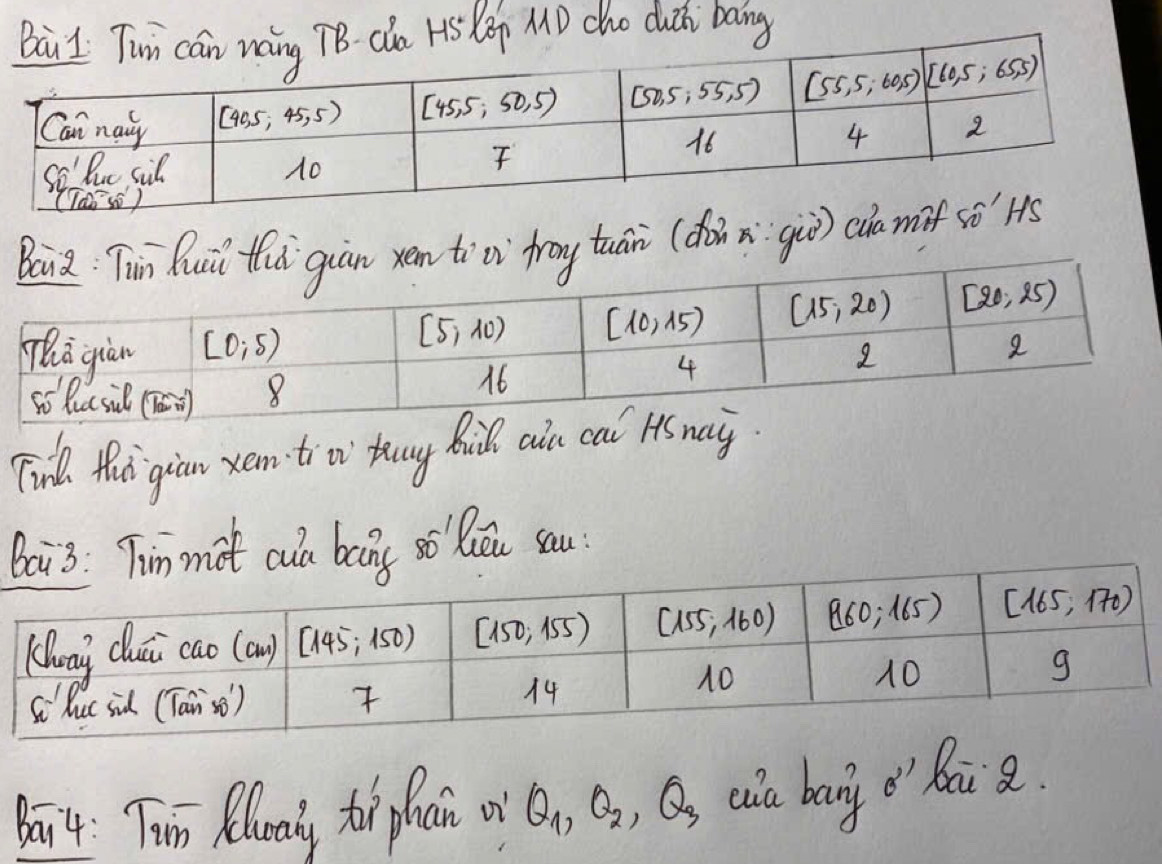 Bài 1: Tìm cân nặng TB của HS lớp 11D cho dưới bảng
Cân nặng [40,5; 45,5) [45,5; 50,5) [50,5; 55,5) [55,5; 60,5) [60,5; 65,5)
Số học sinh (Tần số) 10 7 16 4 2
Bài 2: Tìm hiểu thời gian xem ti vi trong tuần (đơn vị: giờ) của một số HS
Thời gian [0; 5) [5; 10) [10; 15) [15; 20) [20; 25)
Số học sinh (Tần số) 8 16 4 2 2
Tính thời gian xem ti vi trung bình của các HS này.
Bài 3: Tìm mốt của bảng số liệu sau:
Khoảng chiều cao (cm) [145; 150) [150; 155) [155; 160) [160; 165) [165; 170)
Số học sinh (Tần số) 7 14 10 10 9
Bài 4: Tìm khoảng tứ phân vị Q1, Q2, Q3 của bảng ở bài 2.